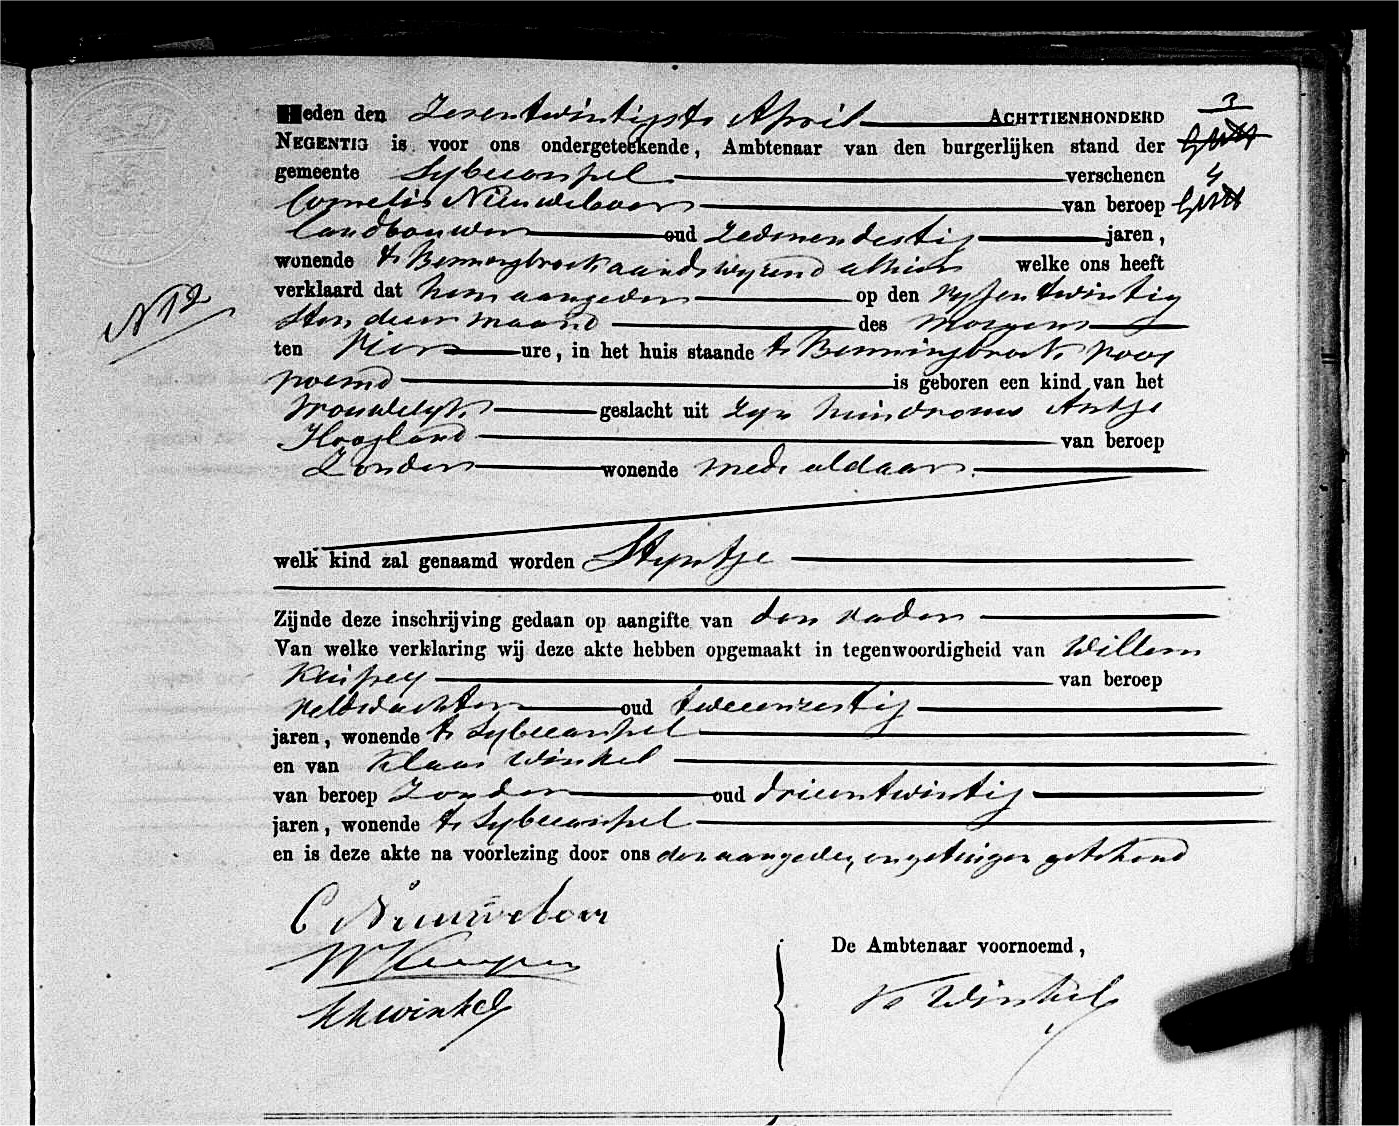 Heden den Zesentwintigste April ACHTTIENHONDERD
3
NEGENTIG is voor ons ondergeteekende, Ambtenaar van den burgerlijken stand der
gemeente Sybecarspel verschenen
4
Cornelis Nieuweboer van beroep
landbouwer oud zevenendertig jaren,
wonende te Benningbroek aandswyzend alhier welke ons heeft
verklaard dat hem aangever op den vyfentwintig
sten dezer maand des morgens
No 12
ten vier ure, in het huis staande te Benningbroek voor
noemd is geboren een kind van het
vrouwelyk geslacht uit zyn huisvrouw Antje
Hoogland van beroep
Zonder wonende mede aldaar.
welk kind zal genaamd worden Styntje
Zijnde deze inschrijving gedaan op aangifte van den vader
Van welke verklaring wij deze akte hebben opgemaakt in tegenwoordigheid van Willem
van beroep
veldwachter oud tweeenzestig
jaren, wonende te Sybecarspel
en van Klaas Winkel
van beroep Zonder oud drieentwintig
jaren, wonende te Sybecarspel
en is deze akte na voorlezing door ons den aangever, en getuigen geteekend
C Nieuweboer
De Ambtenaar voornoemd,
W Kuyper
Winkel
Winkel